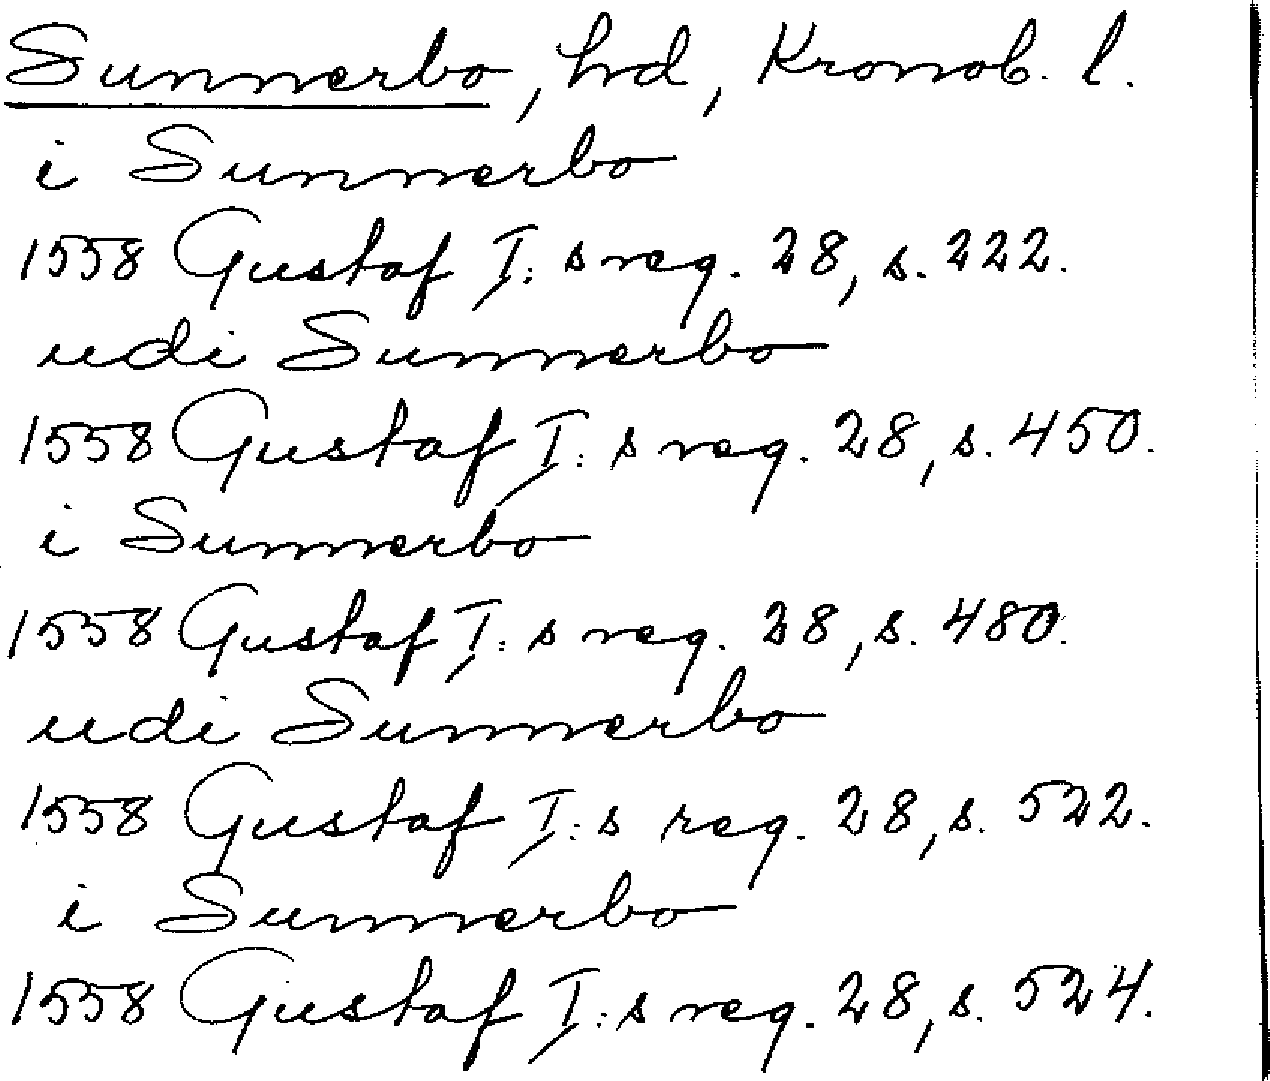 Sunnerbo, hd, Kronob. l.
i Sunnerbo
1558 Gustaf I:s reg. 28, s. 222.
udi Sunnerbo
1558 Gustaf I:s reg. 28, s. 450.
i Sunnerbo
1558 Gustaf I:s reg. 28, s. 480.
udi Sunnerbo
1558 Gustaf I:s reg. 28, s. 522.
i Sunnerbo
1558 Gustaf I:s reg. 28, s. 524.